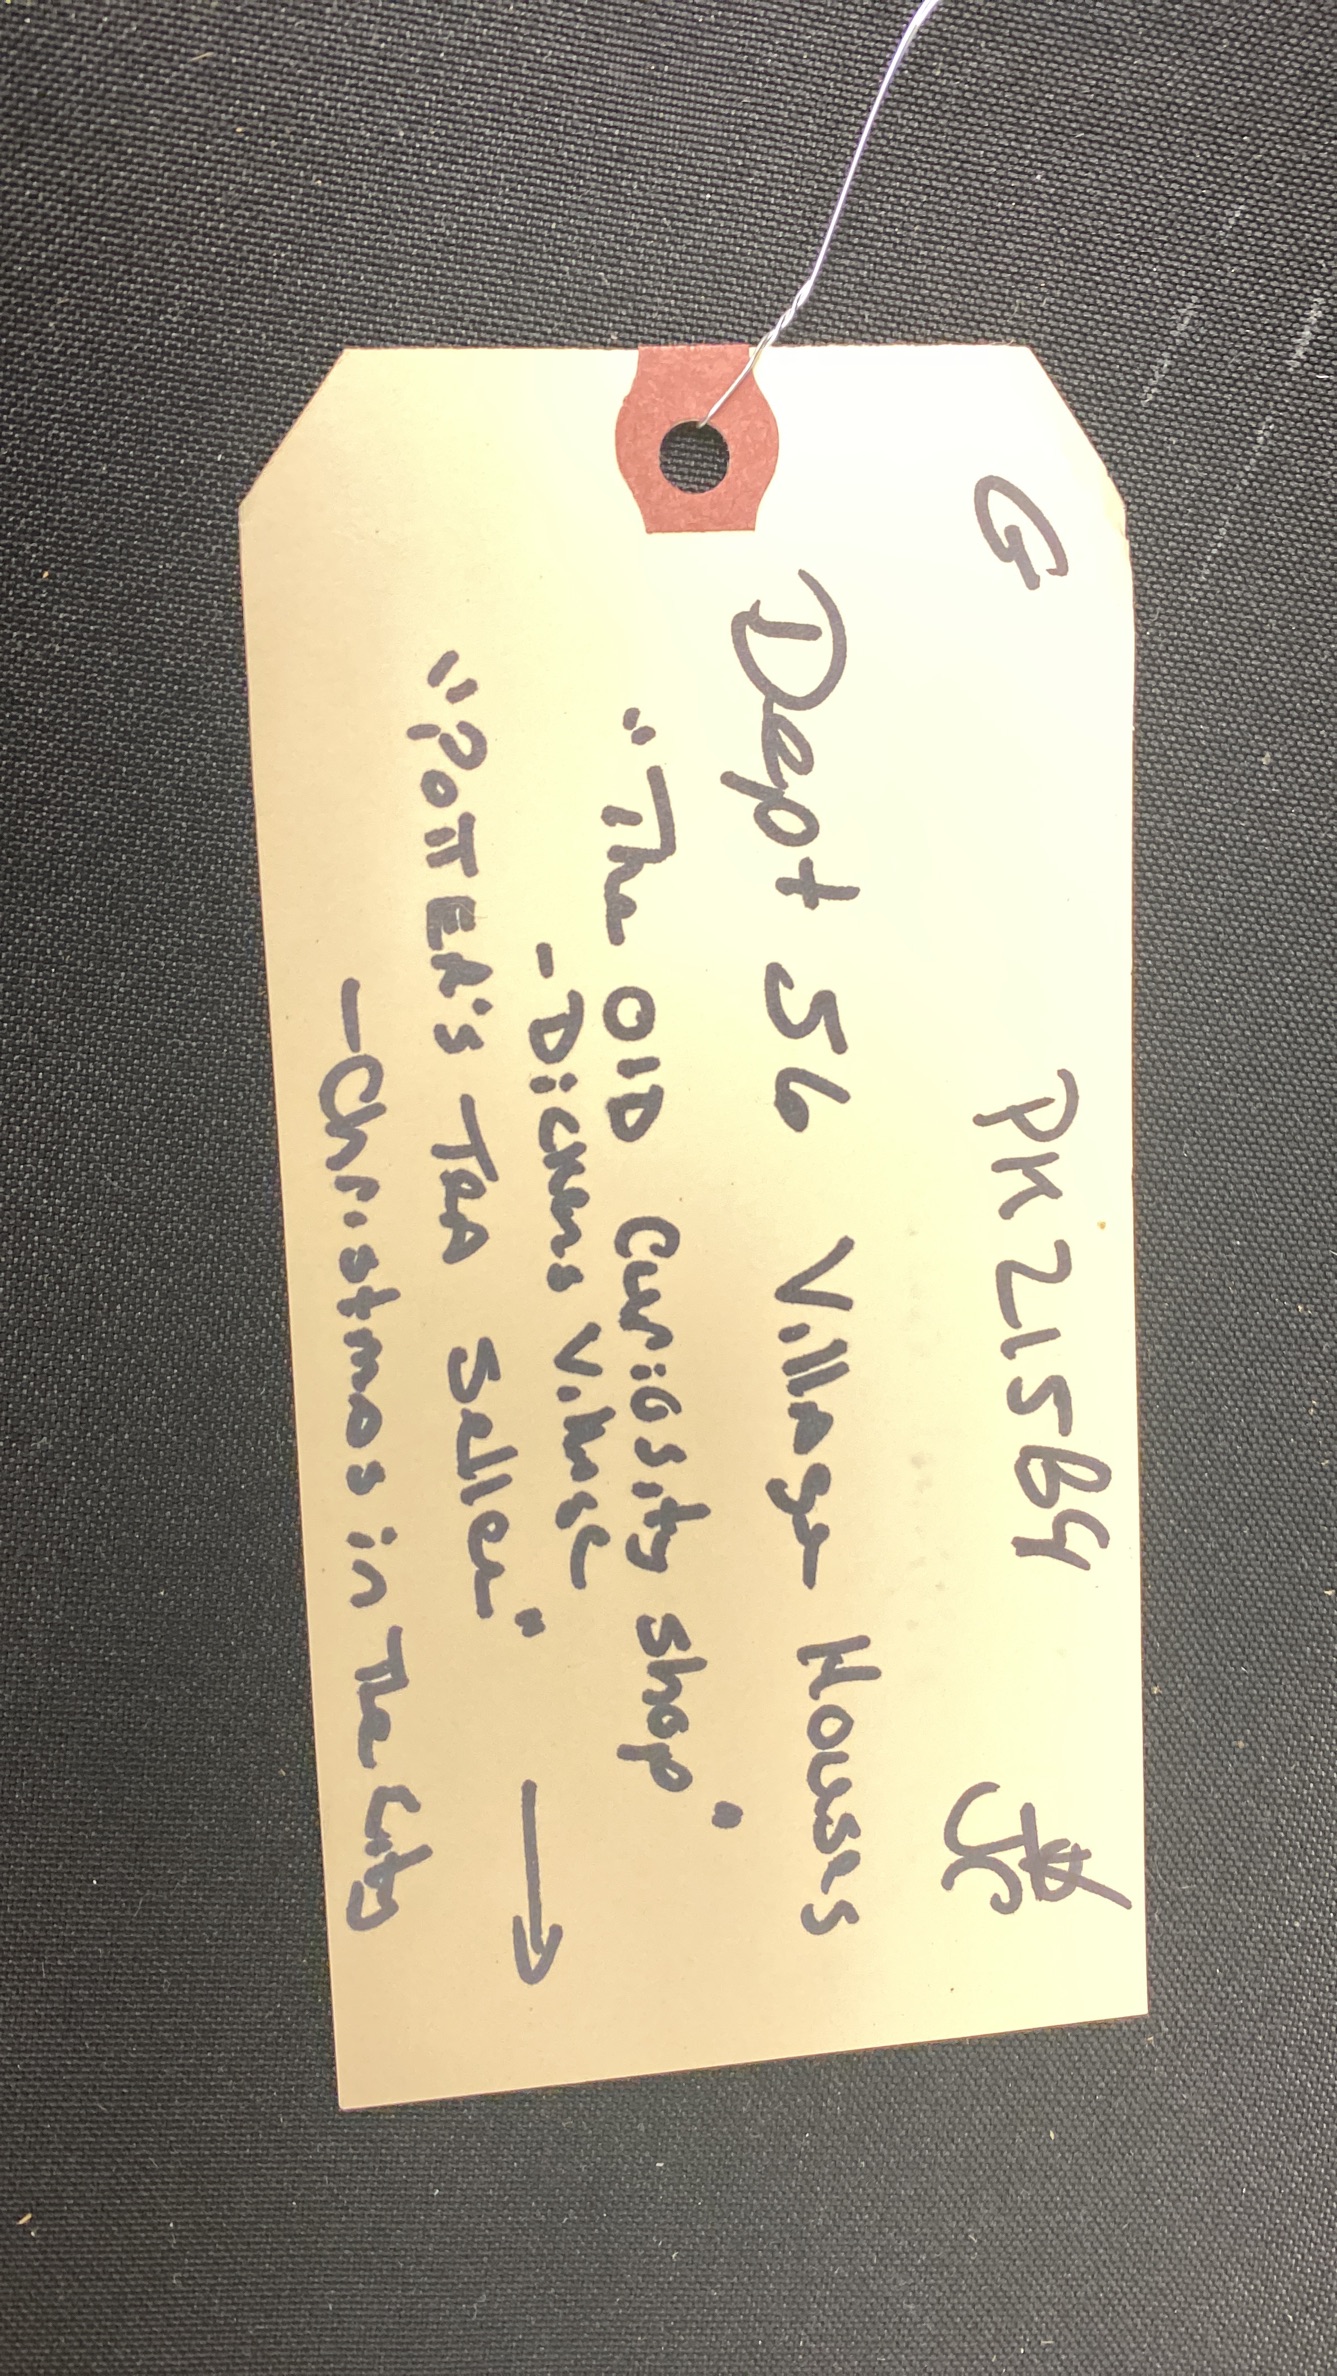 G PK215B9 JC
Dept 56 Village Houses
"The OlD Curiosity Shop"
-Dickens Village
"POTTER's Tea Seller"
-Christmas in The City